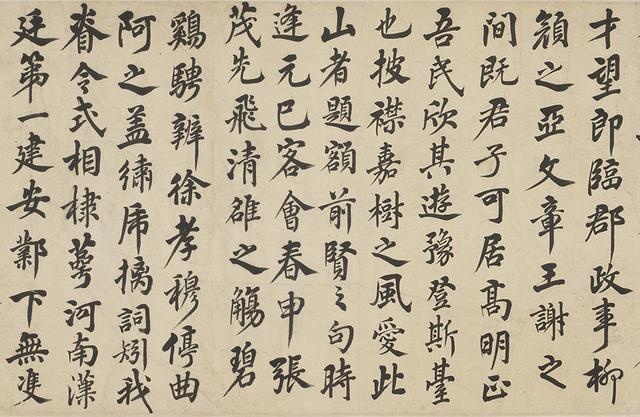 才望即臨郡政事柳
顔之亞文章王謝之
間既君子可居高明正
吾民欣其遊豫登斯臺
也披襟嘉樹之風愛此
山者題額前賢〻句時
逢元巳客會春申張
茂先飛清雒之觴碧
鷄騁辨徐孝穆停曲
阿之蓋繡虎摛詞矧我
眷令式相棣萼河南漢
廷第一建安鄴下無雙